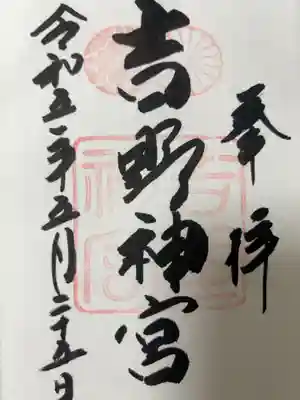 奉拝
吉野神宮
令和五年五月二十五日